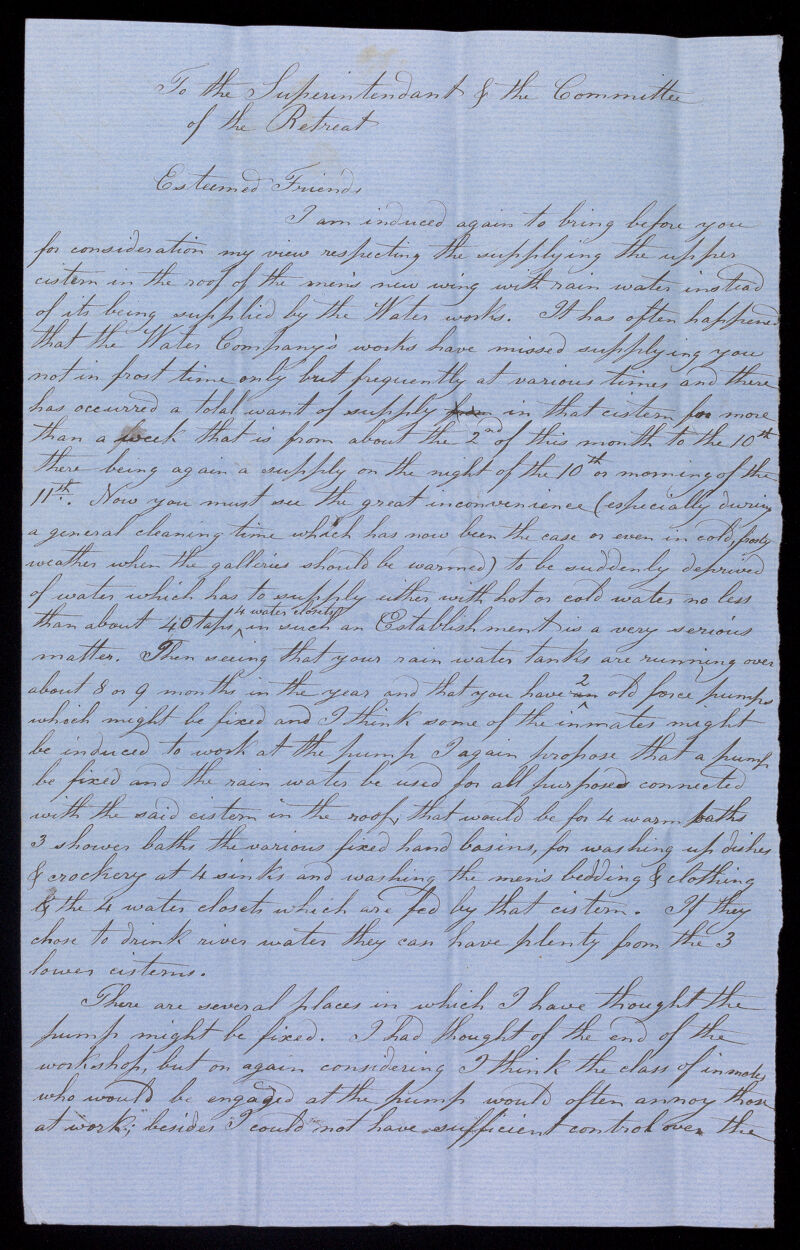 To the Superintendant & the Committee
of the Retreat
Esteemed Friends
I am induced again to bring before you
for consideration my view respecting the supplying the upper
cistern in the roof of the men's new wing with rain water instead
of its being supplied by the Water works. It has often happened
that the Water Company's works have missed supplying you
not in frost time only but frequently at various times and there
has occurred a total want of supply in that cistern for more
than a week that is from about the 2nd of this month to the 10th
there being again a supply on the night of the 10th or morning of the
11th. Now you must see the great inconvenience (especially during
a general cleaning time which has now been the case or even in cold, frosty
weather when the galleries should be warmed) to be suddenly deprived
of water which has to supply either with hot or cold water no less
than about 40 taps 4 water closets in such an Establishment is a very serious
matter. Then seeing that your rain water tanks are running over
about 8 or 9 months in the year and that you have an 2 old force pumps
which might be fixed and I think some of the inmates might
be induced to work at the pump I again propose that a pump
be fixed and the rain water be used for all purposes connected
with the said cistern in the roof, that would be for 4 warm baths
3 shower baths the various fixed hand basins, for washing up dishes
& crockery at 4 sinks and washing the men's bedding & clothing
& the 4 water closets which are fed by that cistern. If they
chose to drink river water they can have plenty from the 3
lower cisterns.
There are several places in which I have thought the
pump might be fixed. I had thought of the end of the
workshop, but on again considering I think the class of inmates
who would be engaged at the pump would often annoy those
at work; besides I could not have sufficient control over the